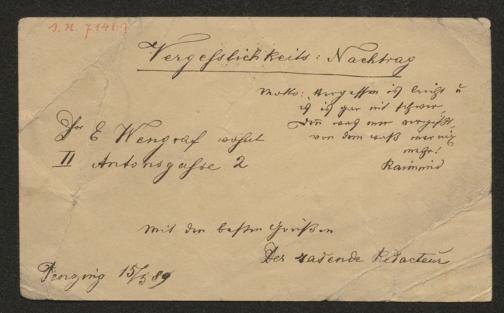 I.N. 71461
Vergesslichkeits: Nachtrag
Motto: Vergessen ist leicht u
ist gar nit schwer,
Denn was man vergisst
von dem weiß man nix
mehr!
Raimund
E Wengraf wohnt
II Antonsgasse 2
Mit den besten Grüßen
Der rasende Redacteur
Penzing 15/5 89